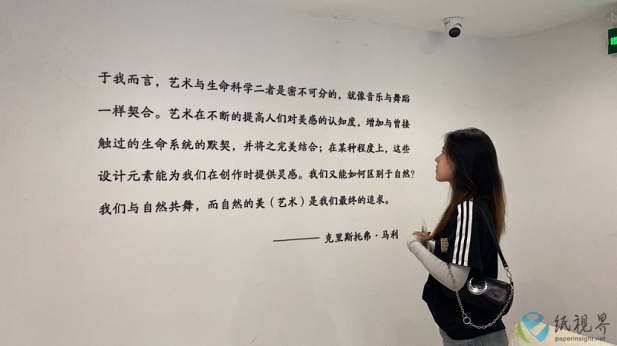 于我而言，艺术与生命科学二者是密不可分的，就像音乐与舞蹈
一样契合。艺术在不断的提高人们对美感的认知度，增加与曾接
触过的生命系统的默契，并将之完美结合；在某种程度上，这些
设计元素能为我们在创作时提供灵感。我们又能如何区别于自然？
我们与自然共舞，而自然的美（艺术）是我们最终的追求。
——克里斯托弗·马利
纸视界
paperinsight.net